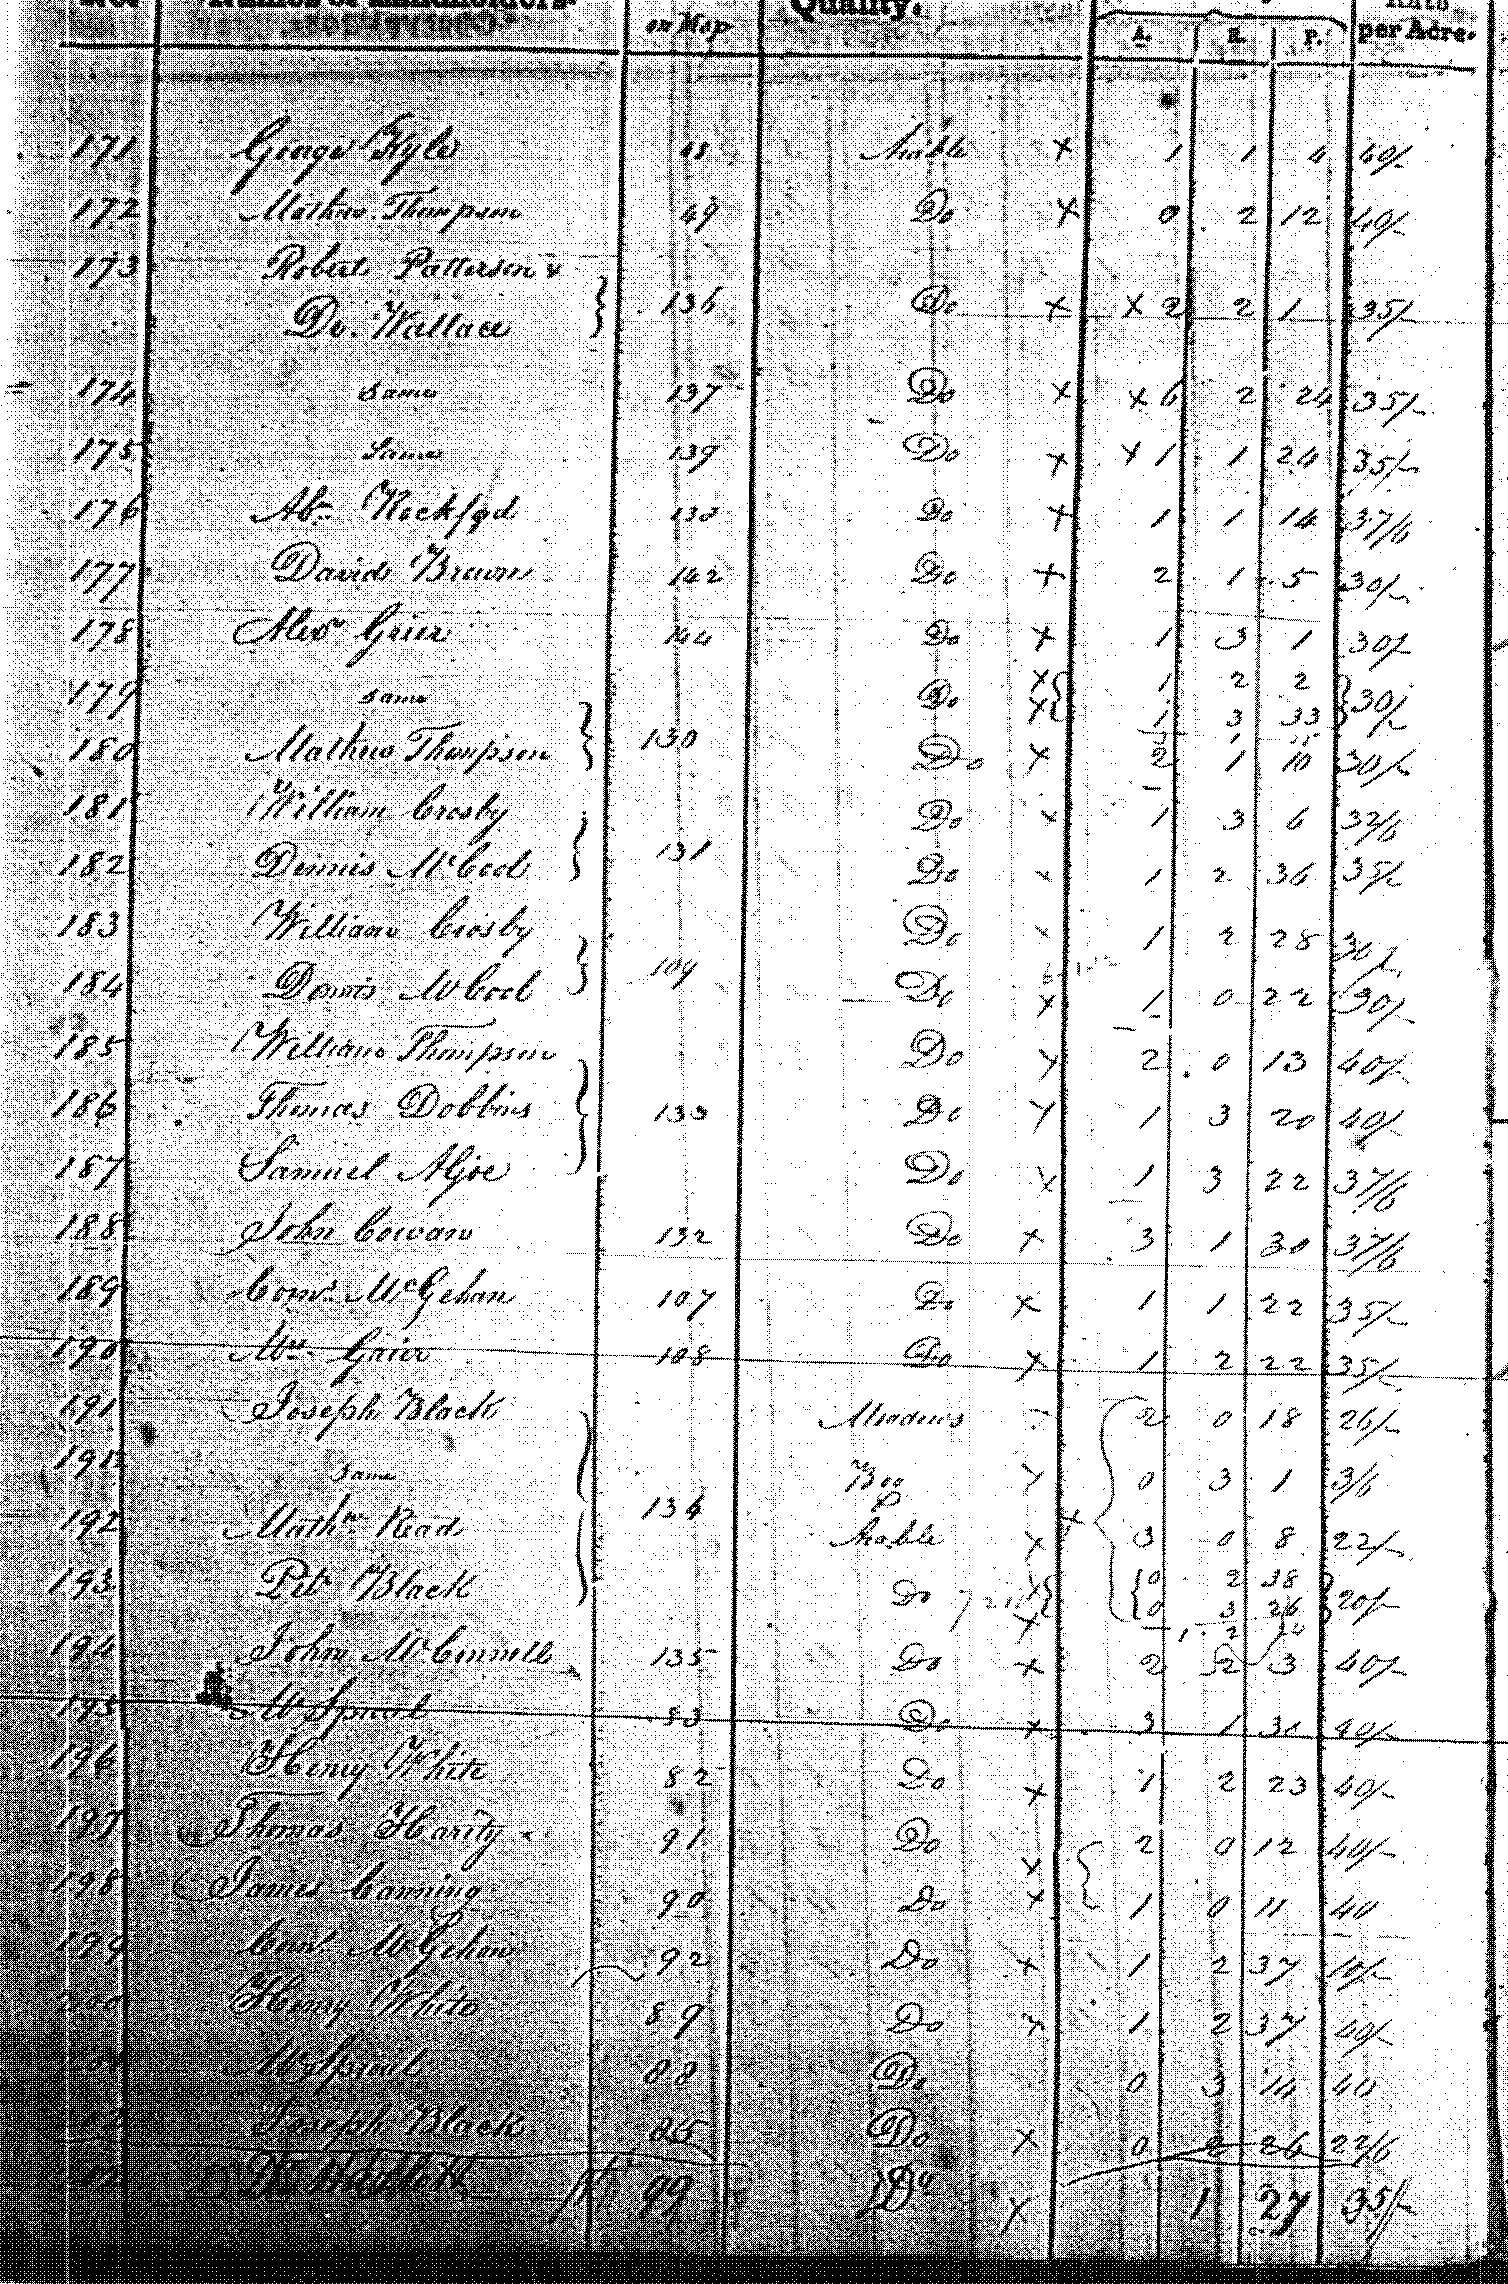 No. Names of Landholders. on Map Quality. A. R. P. Rate per Acre.
171 George Kyle 48 Arable x 1 1 4 40/-
172 Mathew Thompson 49 Do x 0 2 12 40/-
173 Robert Patterson &
Dr. Wallace 136 Do x x 2 2 1 35/-
174 same 137 Do x x 6 2 24 35/-
175 Same 139 Do x x 1 1 24 35/-
176 Abm. Rockford 138 Do x 1 1 14 37/6
177 David Brown 142 Do x 2 1 5 30/-
178 Alexr Grier 144 Do x 1 3 1 30/-
179 same Do x 1 2 2 30/-
x 1 3 33
180 Mathew Thompson 130 Do x 2 1 10 30/-
181 William Crosby Do x 1 3 6 32/6
182 Dennis McCool 131 Do x 1 2 36 35/-
183 William Crosby Do 1 2 28 30/-
184 Dennis McCool 109 Do x 1 0 22 30/-
185 William Thompson Do x 2 0 13 40/-
186 Thomas Dobbins 133 Do x 1 3 20 40/-
187 Samuel Aljoe Do x 1 3 22 37/6
188 John Cowan 132 Do x 3 1 30 37/6
189 Cors. McGehan 107 Do x 1 1 22 35/-
190 Wm. Grier 108 Do x 1 2 22 35/-
191 Joseph Black Meadows 2 0 18 26/-
191 same Bog x 0 3 1 3/6
192 Mathw Read 134 Arable x x 3 0 8 22/-
193 Petr Black Do x 0 2 38 20/-
x 0 3 26
194 John McConnell 135 Do x 2 2 3 40/-
195 83 Do x 3 1 31 40/-
196 Henry White 82 Do x 1 2 23 40/-
197 Thomas Harity 91 Do x 2 0 12 40/-
198 James Canning 90 Do x 1 0 11 40
199 Cors. McGehan 92 Do x 1 2 37
Henry White 89 Do x 1 2 37 40/-
88 Do 0 3 14 40
Joseph Black 86 Do x 0 2 26 22/6
99 Do x 1 27 35/-